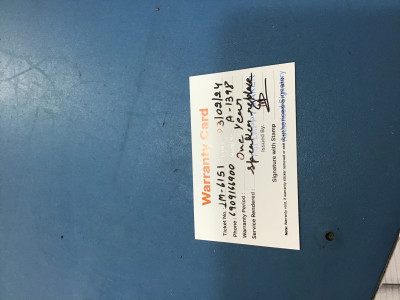 Warranty Card
Ticket No. JM-6151 03/02/24
Phone: 6909166900 A-1398
Warranty Period: One Year
Service Rendered: speaker replace
Issued By.
Signature with Stamp
Authorised Signatory
Note: Warranty void, if warranty sticker removed or